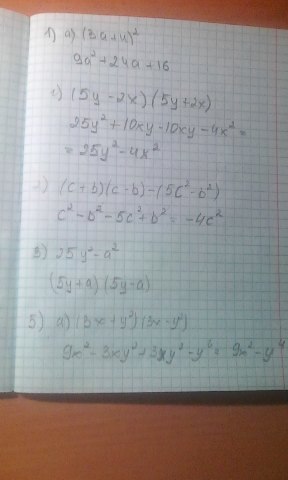 1) а) (3a+4)²
9a²+24a+16
в) (5y-2x)(5y+2x)
25y²+10xy-10xy-4x²=
=25y²-4x²
2) (c+b)(c-b)-(5c²-b²)
c²-b²-5c²+b²=-4c²
3) 25y²-a²
(5y+a)(5y-a)
5) а) (3x+y²)(3x-y²)
9x²-3xy²+3xy²-y⁴= 9x²-y⁴